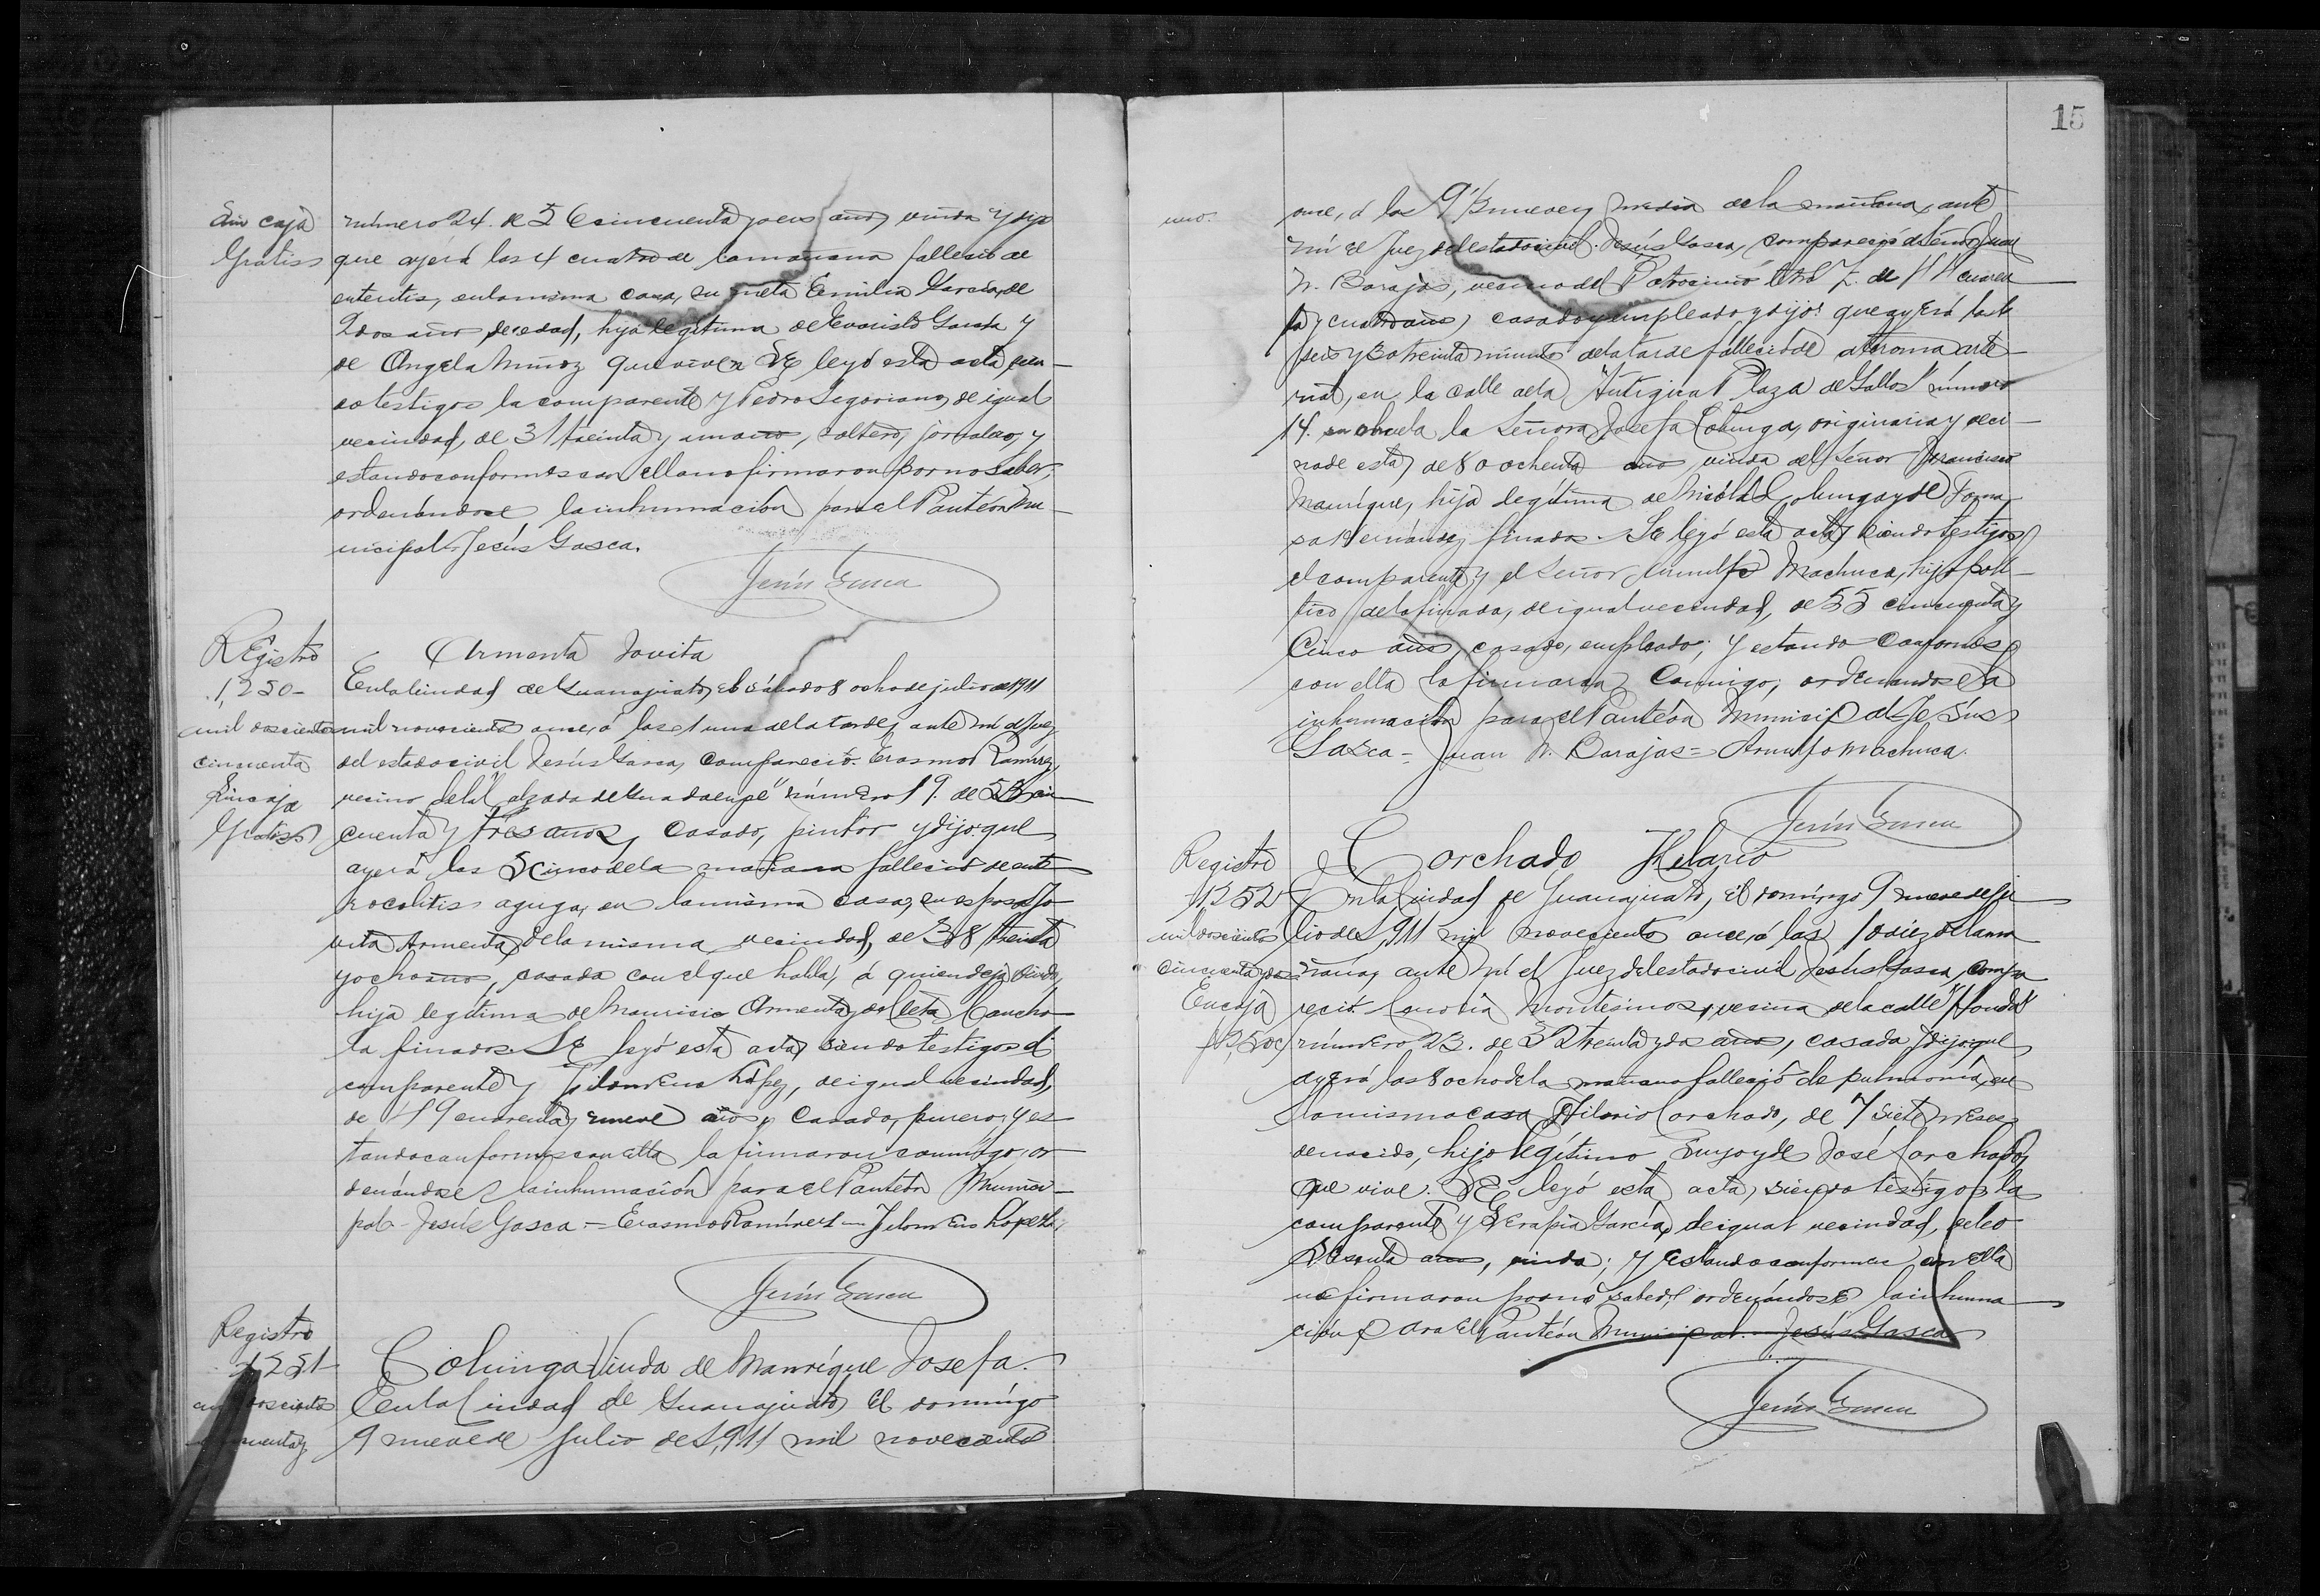 Sin caja
Gratis
número 24. de 56 cincuenta y seis años, viuda y dijo
que ayer á las 4 cuatro de la mañana falleció de
enteritis, en la misma casa, su nieta Emilia García, de
2 dos años de edad, hija legítima de Evaristo García y
de Angela Muñoz que viven. Se leyó esta acta, sien-
do testigos la comparente y Pedro Segoviano, de igual
vecindad, de 31 treinta y un años, soltero, jornalero, y
estando conformes con ella no firmaron por no saber,
ordenándose la inhumación para el Panteón Mu-
nicipal. Jesús Gasca.
Jesús Gasca
Registro
1,250-
mil doscientos
cincuenta
Sin caja
Gratis
Armenta Jovita
En la Ciudad de Guanajuato, el sábado 8 ocho de julio de 1911
mil novecientos once, á las 1 una de la tarde, ante mí el Juez
del estado civil Jesús Gasca, compareció Erasmo Ramírez,
vecino de la "Calzada de Guadalupe" número 19. de 53 cin-
cuenta y tres años, casado, pintor y dijo: que
ayer á las 5 cinco de la mañana falleció de ente
rocolitis aguga, en la misma casa, su esposa Jo
vita Armenta, de la misma vecindad, de 38 treinta
y ocho años, casada con el que habla, á quien deja viudo,
hija legítima de Mauricio Armenta y de Cleta Concho
la finados. Se leyó esta acta, siendo testigos el
comparente y Filomeno López, de igual vecindad,
de 49 cuarenta y nueve años, casado, purero; y es
tando conformes con ella la firmaron conmigo, or
denándose la inhumación para el Panteón Munici-
pal - Jesús Gasca = Erasmo Ramírez = Filomeno Lopez
Jesús Gasca
Registro
1,251-
mil doscientos
cincuenta y
Colunga Viuda de Manríque Josefa.
En la Ciudad de Guanajuato, el domingo
9 nueve de Julio de 1,911 mil novecientos
15
uno.
once, á las 9 1/2 nueve y media de la mañana, ante
mí el Juez del estado civil Jesús Gasca, compareció el Señor Juan
N. Barajas, vecino del Patrocinio letra Z. de 44 cuaren
ta y cuatro años, casado y empleado y dijo: que ayer á las 6
seis y 30 treinta minutos de la tarde falleció de ateroma arte-
rial, en la calle de la "Antigua Plaza de Gallos" número
14. la Señora Josefa Colunga, originaria y veci-
na de esta, de 80 ochenta años, viuda del Señor Francisco
Manríque, hija legítima de Nicolás Colunga y de Toma
sa Hernández, finados. Se leyó esta acta, siendo testigos
el comparente y el Señor Arnulfo Machuca, hijo polí-
tico de la finada, de igual vecindad, de 55 cincuenta y
cinco años, casado, empleado; y estando conformes
con ella la firmaron conmigo, ordenandose la
inhumación para el Panteón Municipal. Jesús
Gasca = Juan N. Barajas = Arnulfo Machuca.
Jesús Gasca
Registro
1,252
mil doscientos
cincuenta y dos
En caja
Corchado Hilario
En la Ciudad de Guanajuato, el domingo 9 nueve de Ju
lio de 1,911 mil novecientos once, á las 10 diez de la ma
ñana, ante mí el Juez del estado civil Jesús Gasca, compa
reció Cenovia Montesinos, vecina de la calle "Honda"
número 23. de 32 treinta y dos años, casada y dijo: que
ayer á las 8 ocho de la mañana falleció de pulmonía, en
la misma casa Hilario Corchado, de 7 siete meses
de nacido, hijo legítimo suyo y de José Corchado,
que vive. Se leyó esta acta, siendo testigos la
comparente y Serapia García, de igual vecindad, de 60
sesenta años, viuda; y estando conformes con ella
no firmaron por no saber, ordenándose la inhuma
ción para el Panteón Municipal. Jesús Gasca
Jesús Gasca